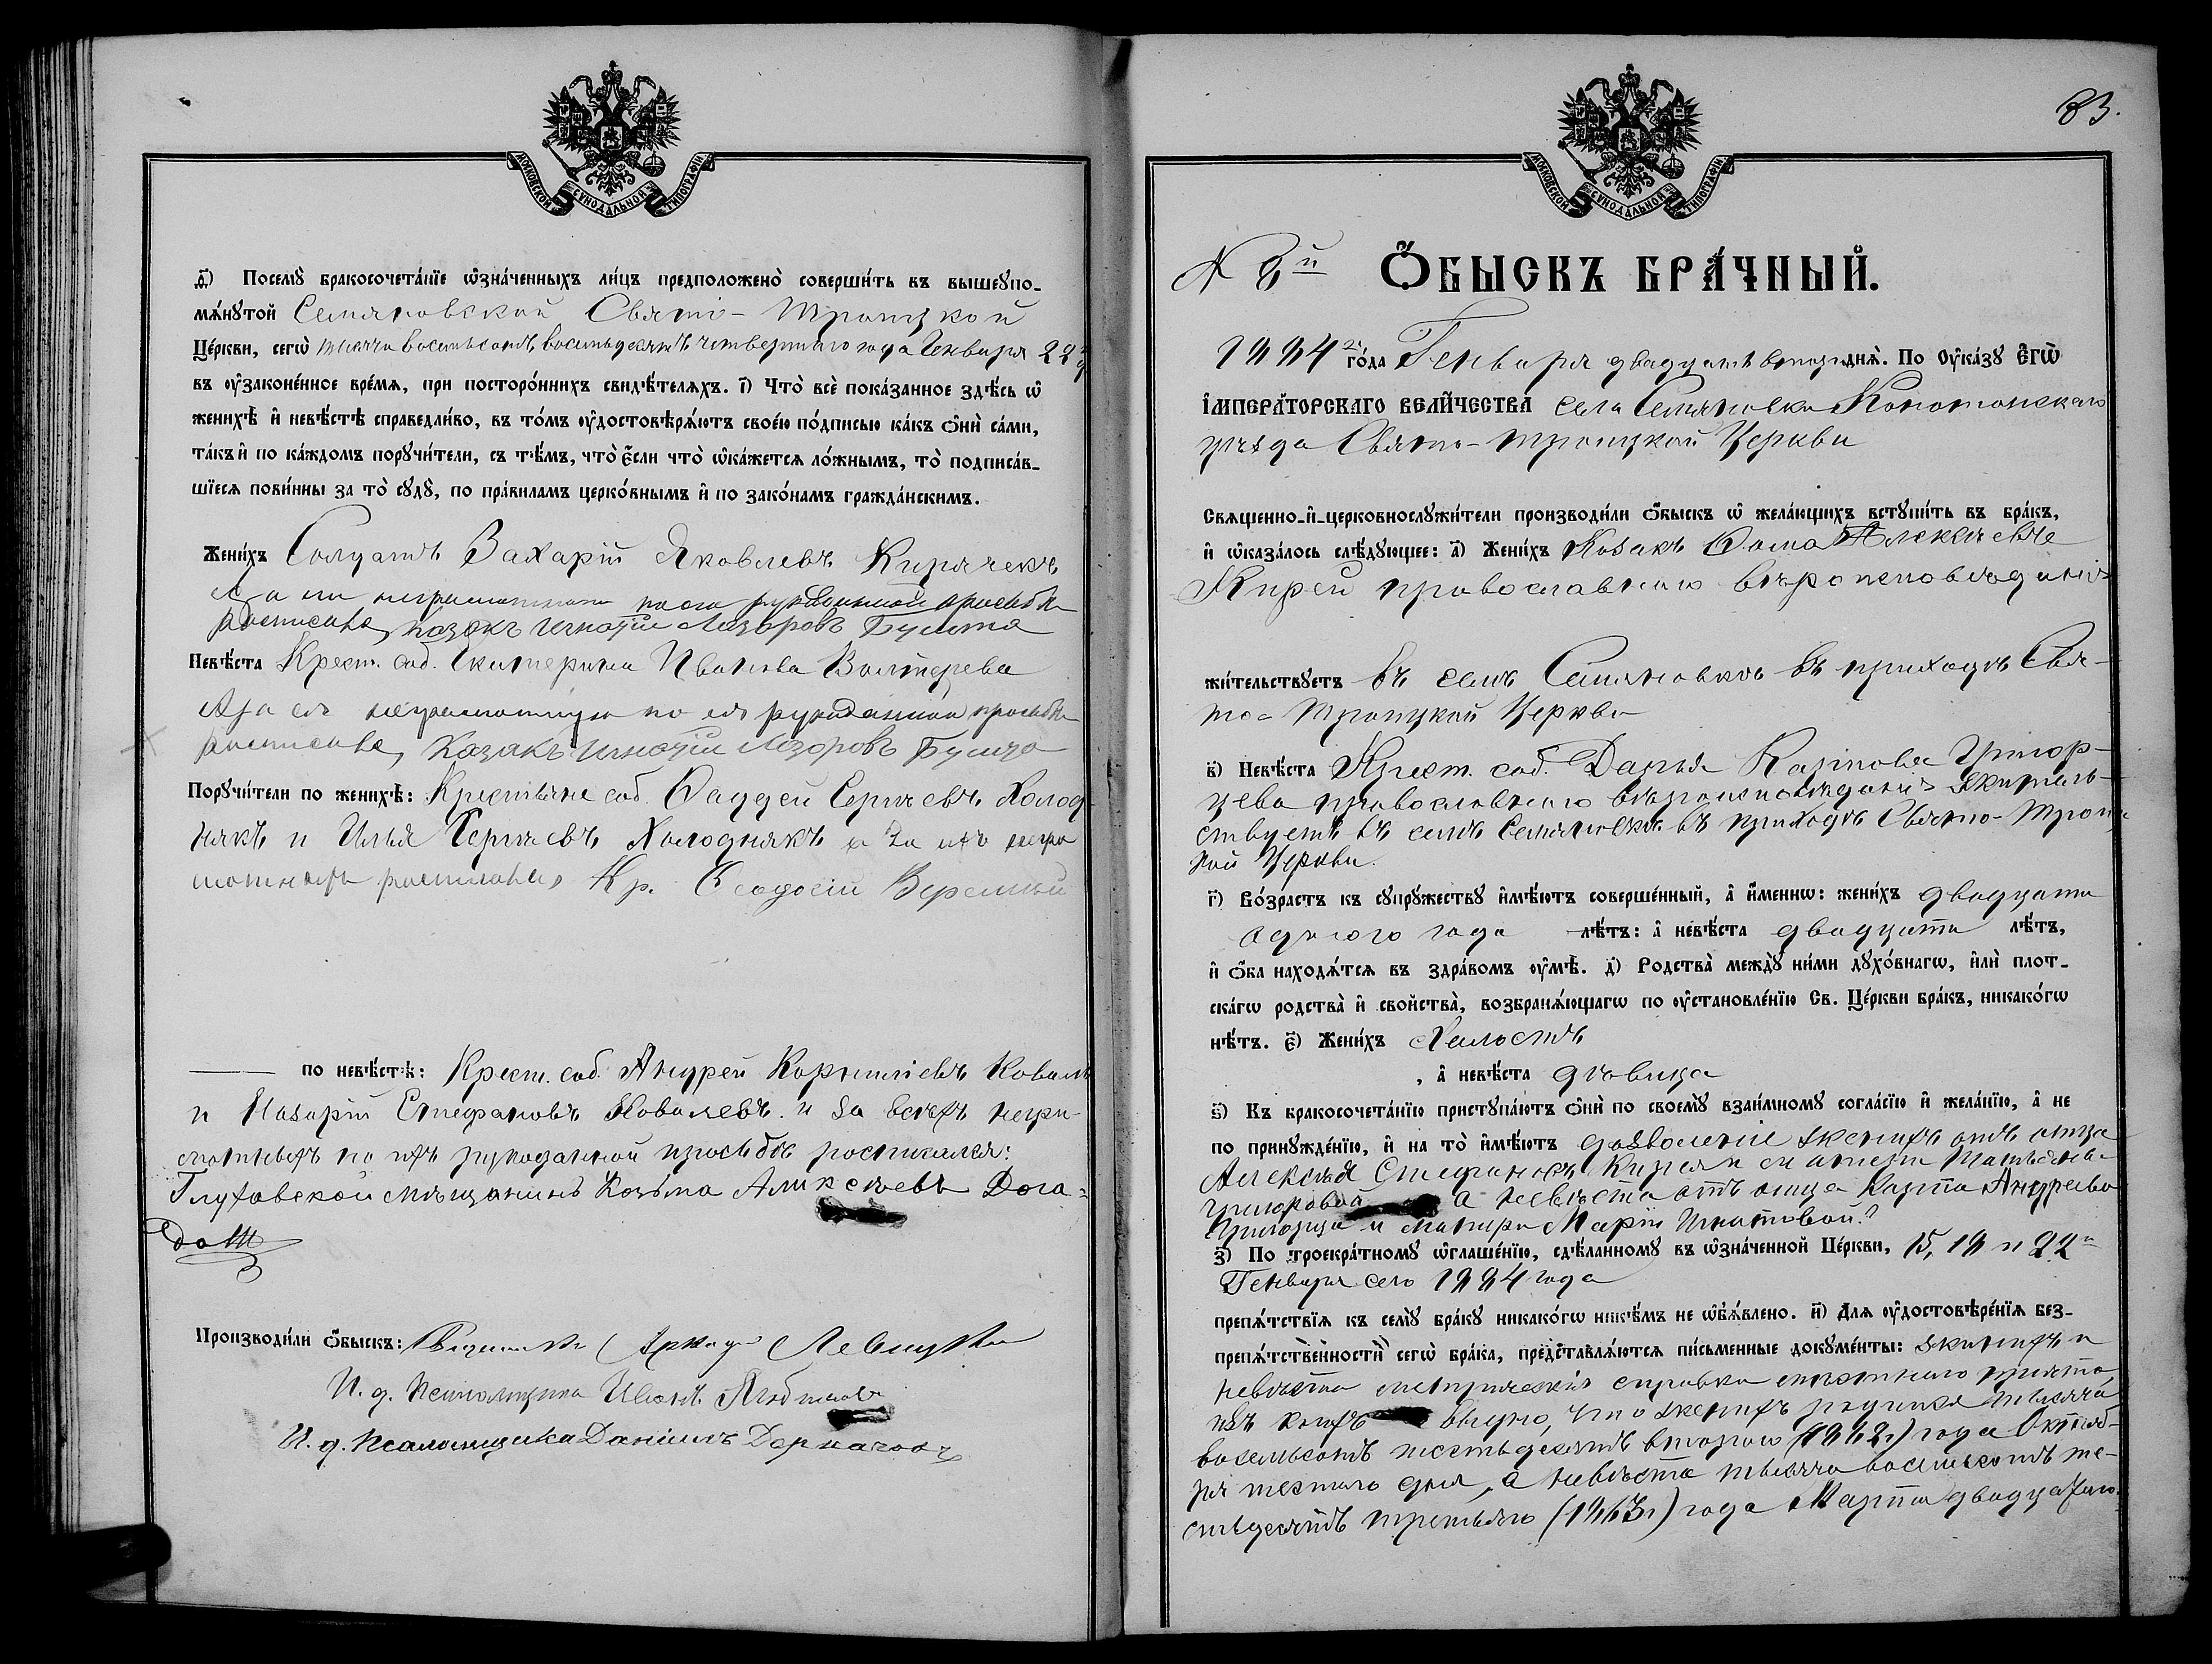 МОСКОВСКОЙ СѴНОДАЛЬНОЙ ТИПОГРАФІИ
д҃і) Посемꙋ̀ бракосочета́нїе ѡ҆зна́ченныхъ ли́цъ предположено̀ соверши́ть въ вышеꙋпо-
мѧ́нꙋтой Семяновской Свято-Троицкой
Це́ркви, сегѡ̀ тысяча восемьсотъ восемьдесятъ четвертаго года Генваря 22
въ ᲂу҆законе́нное вре́мѧ, при посторо́ннихъ свидѣ́телѧхъ. і҃) Что̀ всѐ пока́занное здѣ́сь ѡ҆
женихѣ̀ и҆ невѣ́стѣ справедли́во, въ то́мъ ᲂу҆достовѣрѧ́ютъ свое́ю по́дписью ка́къ ѻ҆нѝ са́ми,
та́къ и҆ по ка́ждомъ порꙋчи́тели, съ тѣ́мъ, что̀ є҆́сли что̀ ѡ҆ка́жетсѧ ло́жнымъ, то̀ подписа́в-
шїесѧ пови́нны за то̀ сꙋдꙋ̀, по пра́виламъ церко́внымъ и҆ по зако́намъ гражда́нскимъ.
Жени́хъ Солдатъ Захарій Яковлевъ Кирячекъ
неграмотнаго по его рукоданной просьбѣ
росписався козакъ Игнатій Лазоровъ
Невѣ́ста Крест. соб. Екатерина Иванова
А за ея неграмотную по ея рукоданной просьбѣ
росписався Казакъ Игнатій Лазоровъ
Порꙋчи́тели по женихѣ̀: Крестьяне соб. Фаддей Сергѣевъ Холод-
някъ и Илья Сергѣевъ Холоднякъ а за ихъ негра
мотныхъ росписався Кр. Феодосій
по невѣ́стѣ: Крест. соб. Андрей Корниліевъ Коваль
и Назарій Стефановъ Ковалевъ и за всѣхъ негра-
мотныхъ по ихъ рукоданной просьбѣ росписался:
Глуховской мѣщанинъ Козьма Аликсѣевъ Дога-
Производи́ли ѻ҆́быскъ: Священникъ Аркадій Левицкій
И. д. псаломщика Иванъ
И. д. псаломщика Даніилъ Деркачовъ
83.
МОСКОВСКОЙ СѴНОДАЛЬНОЙ ТИПОГРАФІИ
№ 8й Ѻ҆́БЫСКЪ БРА́ЧНЫЙ.
1884 го́да Генваря двадцать втораго днѧ̀. По Оу҆ка́зꙋ Є҆гѡ̀
І҆мпера́торскаго Вели́чества села Семяновки Конотопскаго
уѣзда Свято-Троицкой Церкви
Свѧщенно-и҆-церковнослꙋжи́тели производи́ли ѻ҆́быскъ ѡ҆ жела́ющихъ встꙋпи́ть въ бра́къ,
и҆ ѡ҆каза́лось слѣ́дꙋющее: а҃) Жени́хъ Козакъ Фома Алексѣевъ
Кирей православнаго вѣроисповѣданія
жи́тельствꙋетъ въ селѣ Семяновкѣ въ приходѣ Свя-
то-Троицкой Церкви
в҃) Невѣ́ста Крест. соб. Дарья Карпова
православнаго вѣроисповѣданія жительст-
ствуетъ въ селѣ Семяновкѣ въ приходѣ Свято-Троиц
кой Церкви.
г҃) Во́зрастъ къ сꙋпрꙋ́жествꙋ и҆мѣ́ютъ соверше́нный, а҆ и҆́меннѡ: жени́хъ двадцати
одного года лѣ́тъ: а҆ невѣ́ста двадцати лѣ́тъ,
и҆ ѻ҆́ба нахо́дѧтсѧ въ здра́вомъ ᲂу҆мѣ̀. д҃) Родства̀ междꙋ̀ ни́ми дꙋхо́внагѡ, и҆лѝ плот-
ска́гѡ родства̀ и҆ свойства̀, возбранѧ́ющагѡ по ᲂу҆становле́нїю Св. Це́ркви бра́къ, никако́гѡ
нѣ́тъ. є҃) Жени́хъ Холостъ
, а҆ невѣ́ста дѣвица
ѕ҃) Къ бракосочета́нїю пристꙋпа́ютъ ѻ҆нѝ по своемꙋ̀ взаи́мномꙋ согла́сїю и҆ жела́нїю, а҆ не
по принꙋжде́нїю, и҆ на то̀ и҆мѣ́ютъ дозволеніе женихъ отъ отца
Алексѣя Стефанова Кирея и матери Татьяны
Григоровой а невѣста отъ отца Карпа Андреева
и матери Маріи Игнатовой.
з҃) По троекра́тномꙋ ѡ҆глаше́нїю, сдѣ́ланномꙋ въ ѡ҆зна́ченной Це́ркви, 15, 18 и 22
Генваря сего 1884 года
препѧ́тствїѧ къ семꙋ̀ бра́кꙋ никако́гѡ никѣ́мъ не ѡ҆бъѧ́влено. и҃) Длѧ ᲂу҆достовѣре́нїѧ без-
препѧ́тственности сегѡ̀ бра́ка, представлѧ́ютсѧ пи́сьменные докꙋме́нты: женихъ и
невѣста метрическія справки мѣстнаго причта,
изъ коихъ видно, что женихъ родился тысяча
восемьсотъ шестьдесятъ втораго (1862г) года Октяб-
ря шестаго дня, а невѣста тысяча восемьсотъ ше-
стьдесятъ третьяго (1863г) года Марта двадцатаго